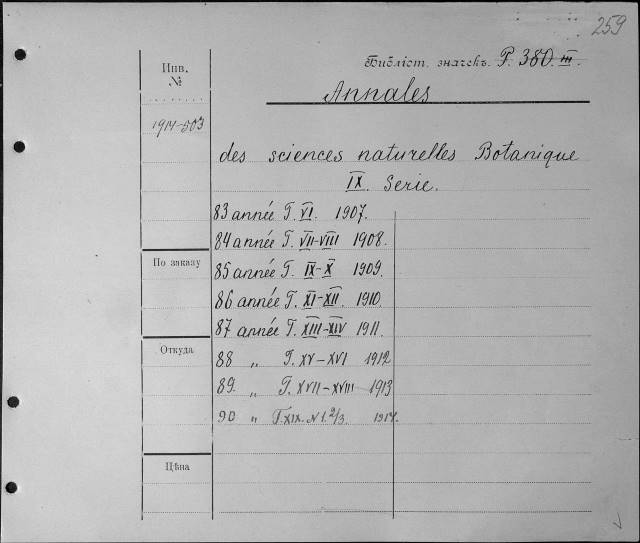 259
Инв. №
Библіот. значекъ. P. 380. III.
Annales
1914-503
des sciences naturelles Botanique
IX. Serie.
83 année T. VI. 1907.
84 année T. VII-VIII 1908.
По заказу
85 année T. IX-X 1909.
86 année T. XI-XII. 1910.
87 année T. XIII-XIV 1911.
Откуда
88 „ T. XV-XVI 1912
89. „ T. XVII-XVIII 1913
90 „ T. XIX. N 1. 2/3. 1914.
Цѣна